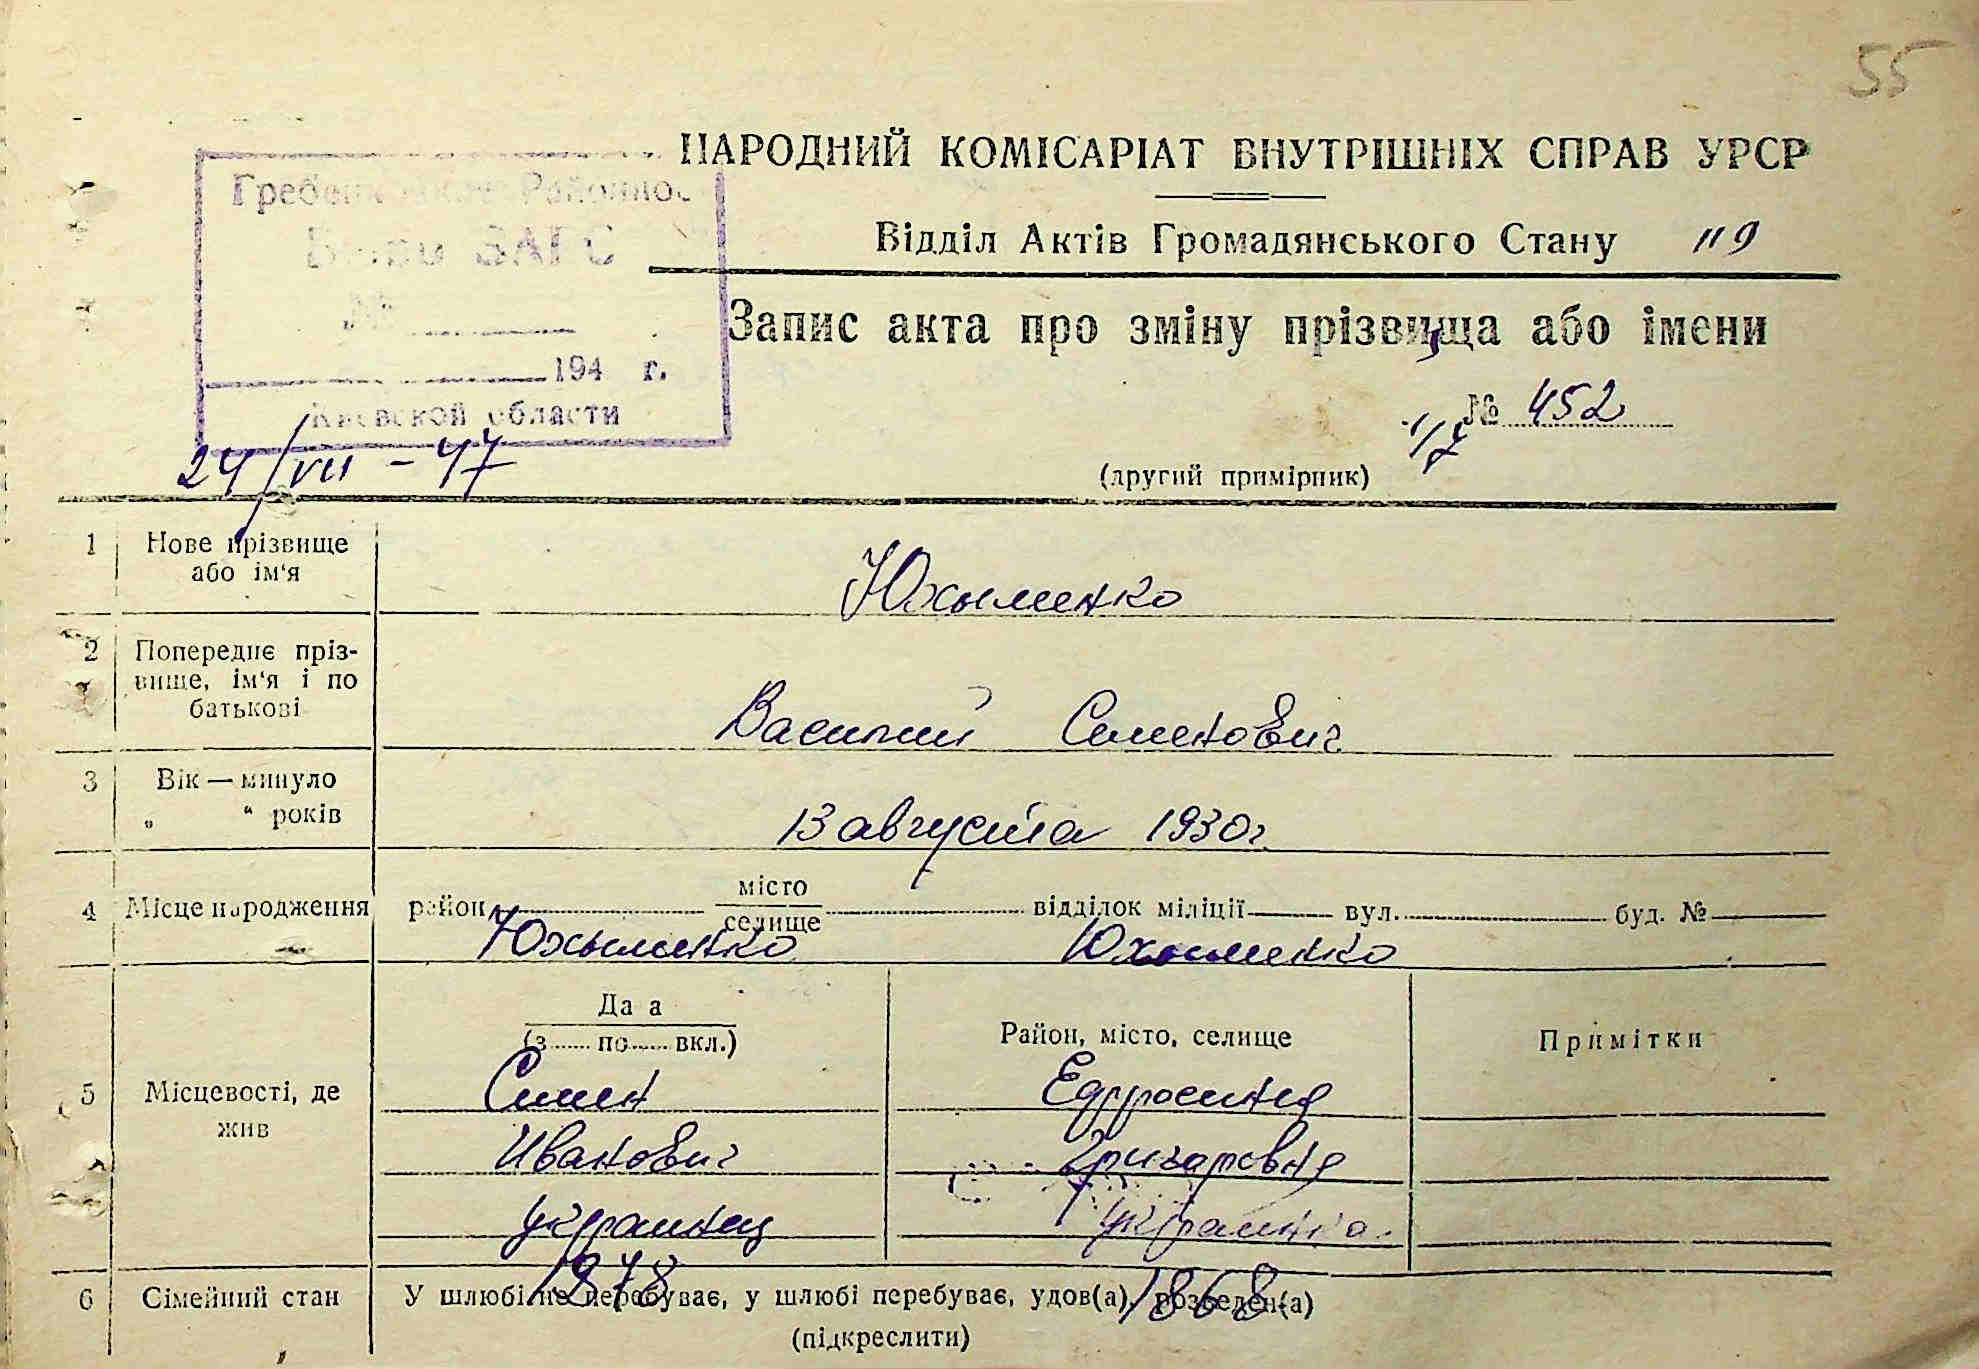 55
НАРОДНИЙ КОМІСАРІАТ ВНУТРІШНІХ СПРАВ УРСР
Відділ Актів Громадянського Стану 119
ЗАГС
№
194 г.
Киевской области
24/VII - 47
Запис акта про зміну прізвища або імени
№ 452
1/7
(другий примірник)
1 Нове прізвище або ім'я
Юхыменко
2 Попереднє пріз-
вище, ім'я і по
батькові
Василий Семенович
3 Вік — минуло
„ “ років
13 августа 1930 г.
4 Місце народження район місто селище відділок міліції вул. буд. №
Юхыменко Юхыменко
Да а
(з ...... по ...... вкл.)
Район, місто, селище
Примітки
5 Місцевості, де
жив
Симен Едросиния
Иванович Григоровня
украинец украинка.
1878 1868
6 Сімейний стан У шлюбі не перебуває, у шлюбі перебуває, удов(а), розведен(а)
(підкреслити)